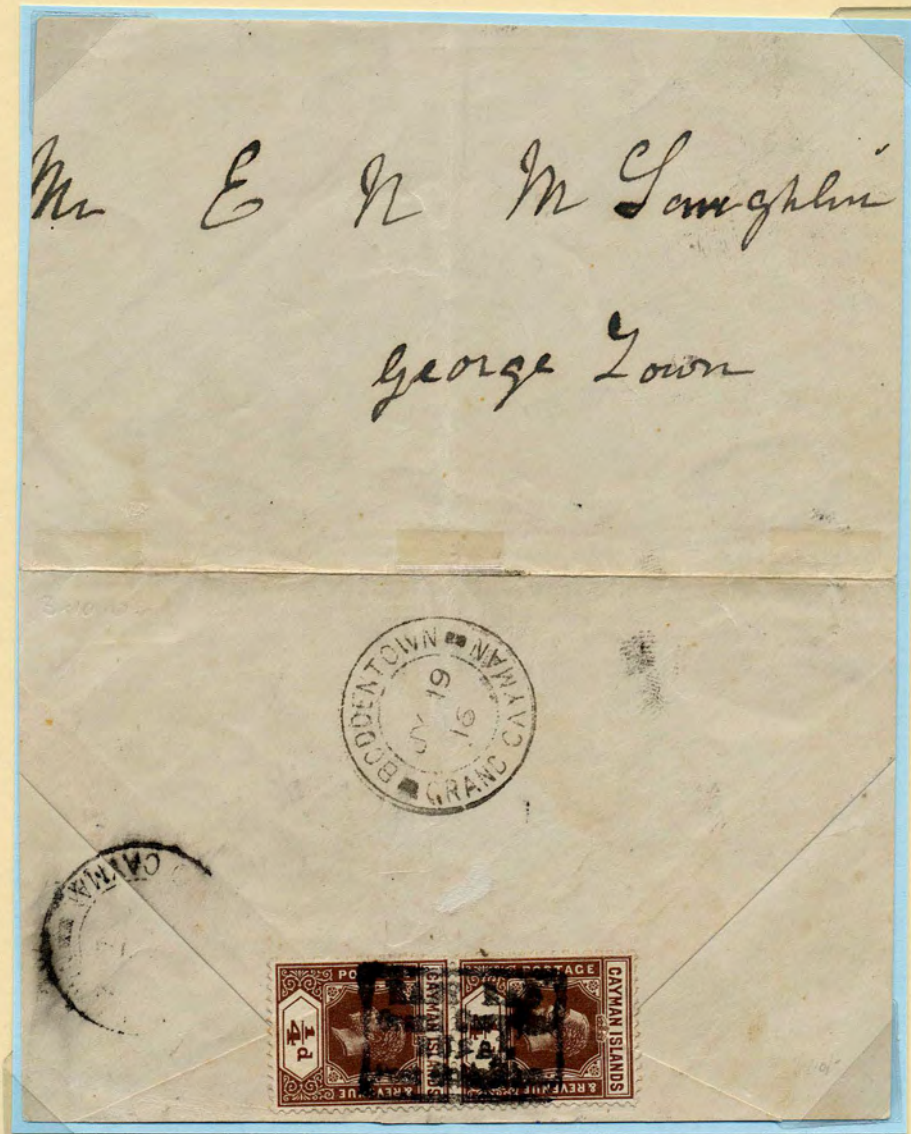 Mr E N McLaughlin
George Town
BODDENTOWN
GRAND CAYMAN
19
JY
16
CAYMAN
POSTAGE
& REVENUE
CAYMAN ISLANDS
1/4d
POSTAGE
& REVENUE
CAYMAN ISLANDS